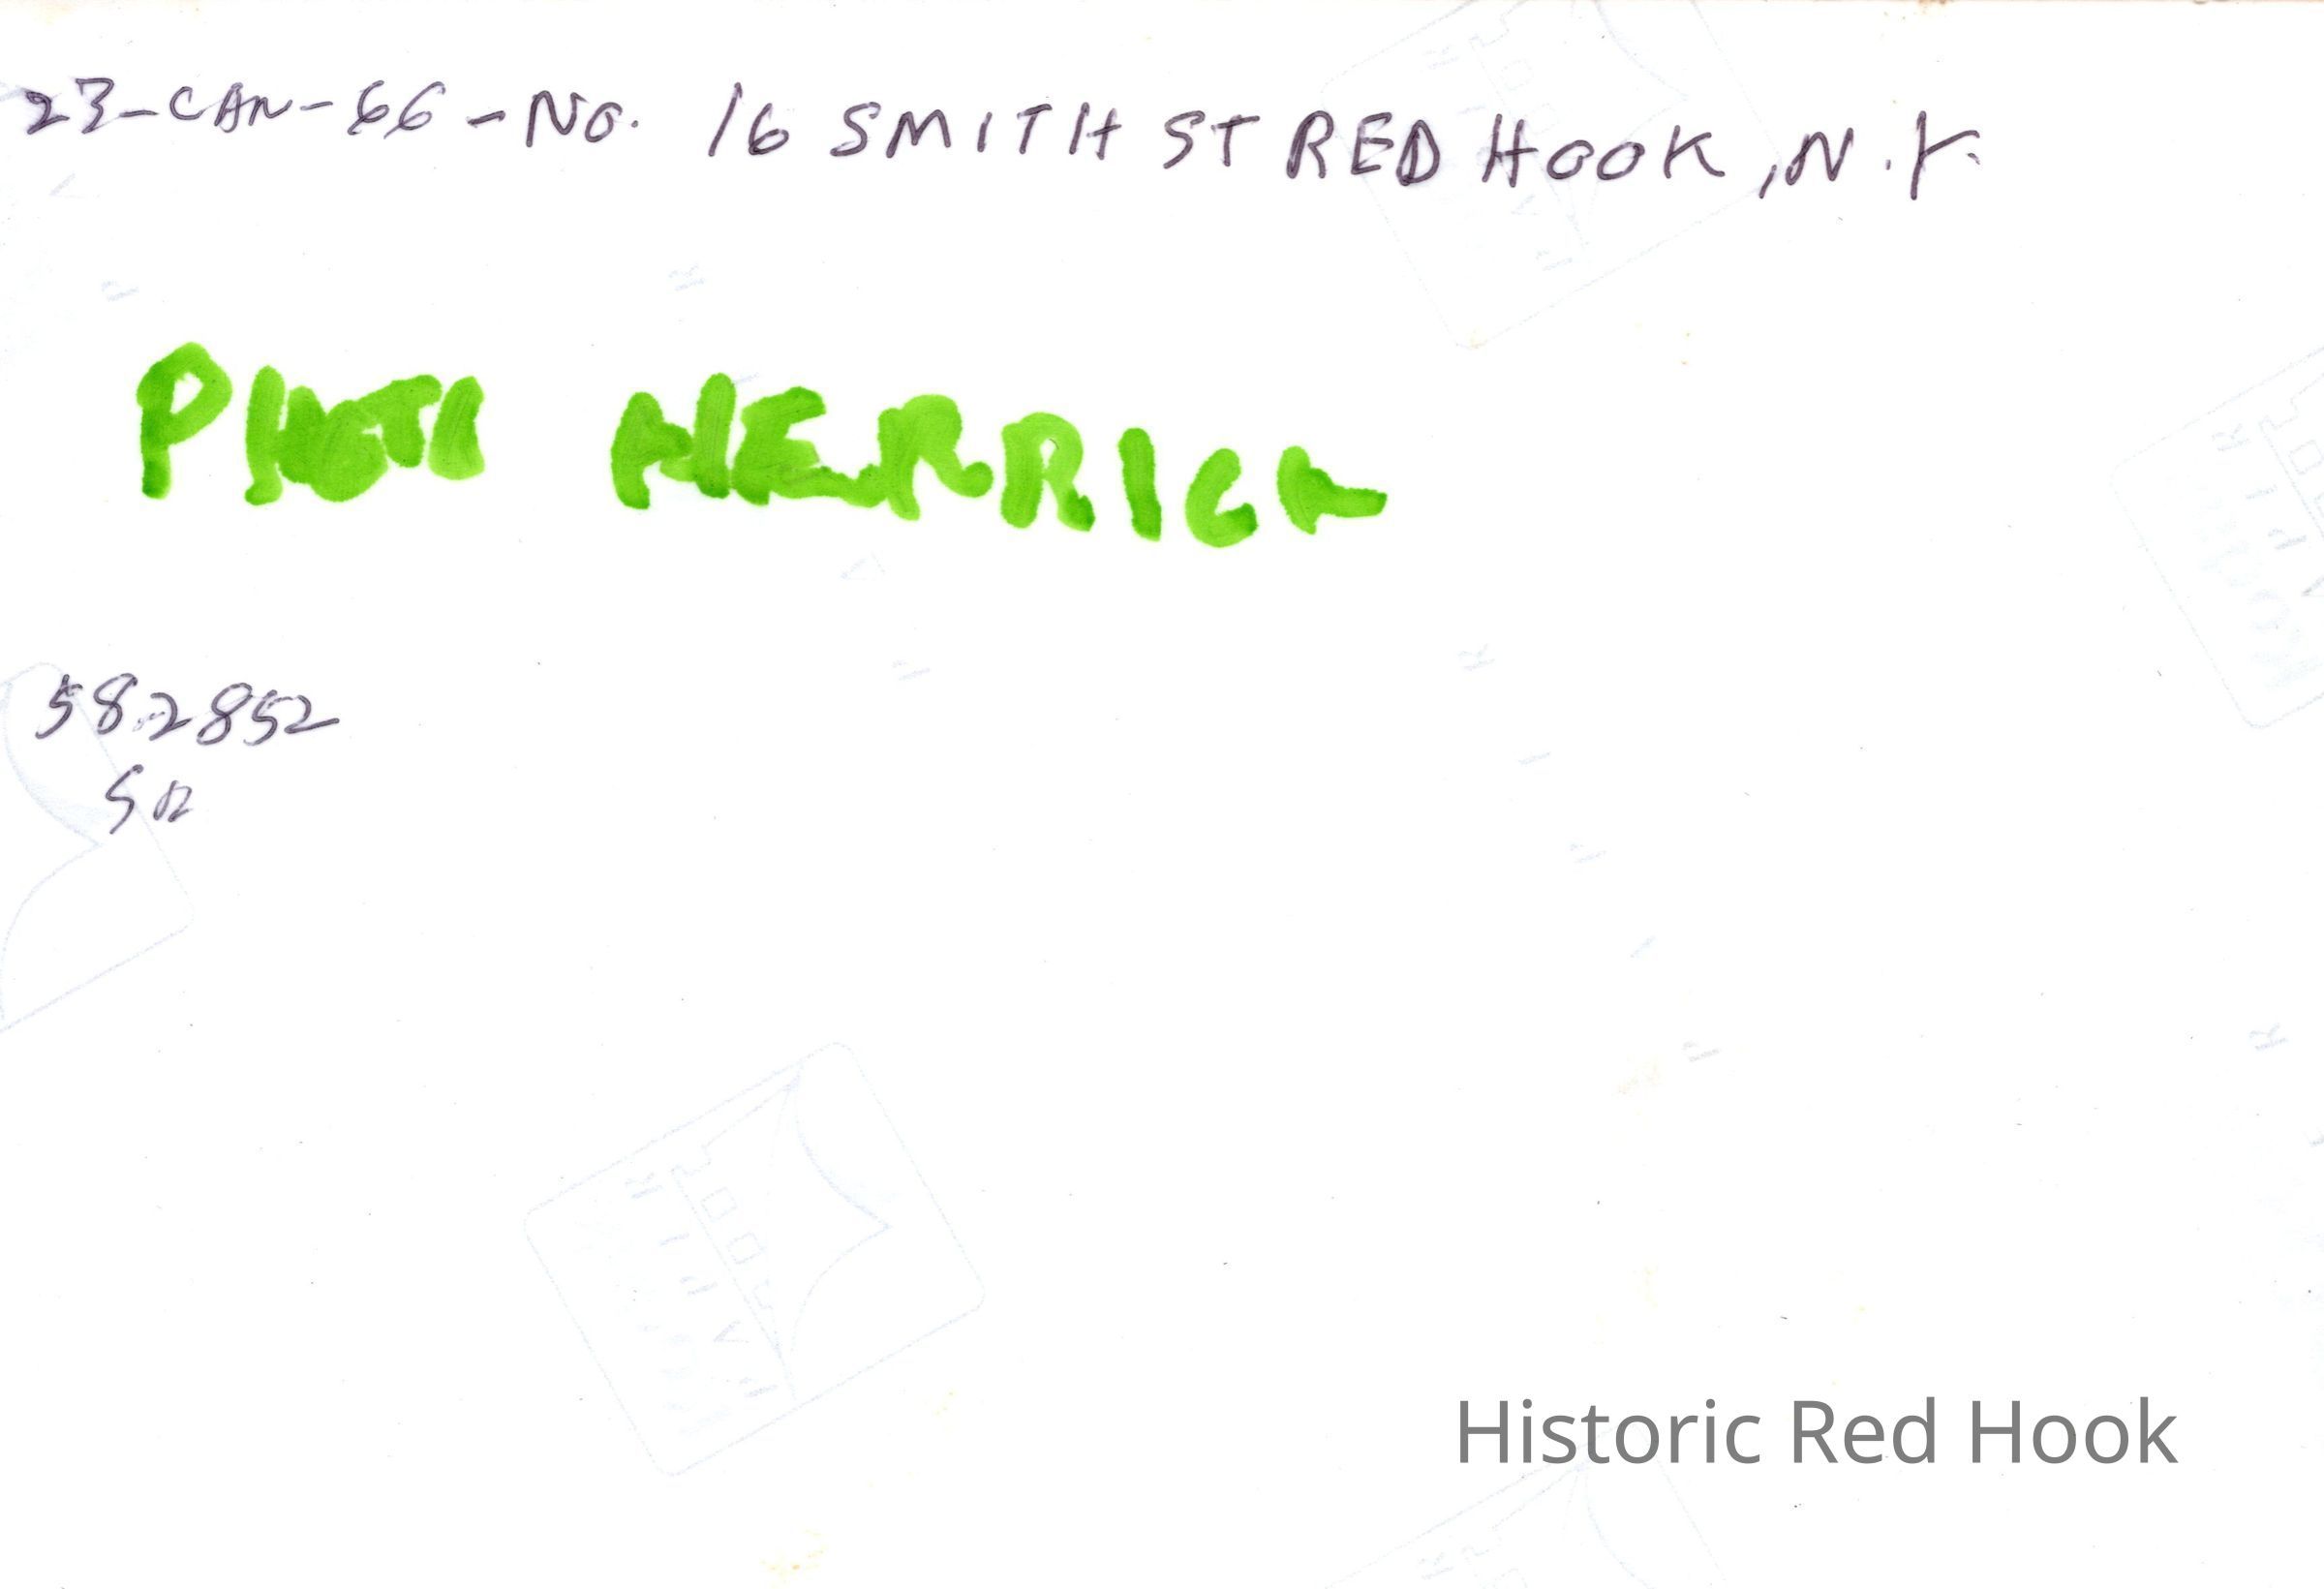 23-CAN-66-NO. 16 SMITH ST RED HOOK, N.Y.
HERRICK
582852
Historic Red Hook